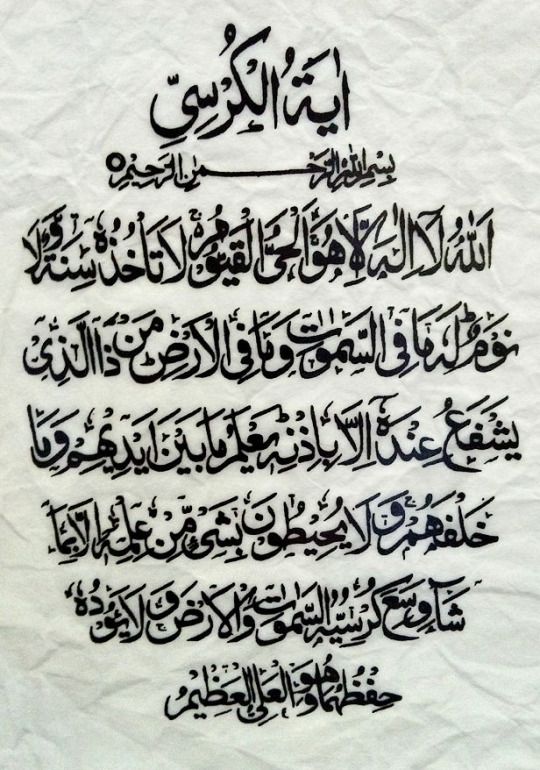 اٰيَةُ الْكُرْسِيِّ
بِسْمِ اللّٰهِ الرَّحْمٰنِ الرَّحِيْمِ
اَللّٰهُ لَاۤ اِلٰهَ اِلَّا هُوَ اَلْحَىُّ الْقَيُّوْمُ لَا تَاْخُذُهٗ سِنَةٌ وَّلَا
نَوْمٌ لَهٗ مَا فِى السَّمٰوٰتِ وَمَا فِى الْاَرْضِ مَنْ ذَا الَّذِىْ
يَشْفَعُ عِنْدَهٗۤ اِلَّا بِاِذْنِهٖ يَعْلَمُ مَا بَيْنَ اَيْدِيْهِمْ وَمَا
خَلْفَهُمْ وَلَا يُحِيْطُوْنَ بِشَىْءٍ مِّنْ عِلْمِهٖۤ اِلَّا بِمَا
شَآءَ وَسِعَ كُرْسِيُّهُ السَّمٰوٰتِ وَالْاَرْضَ وَلَا يَئُوْدُهٗ
حِفْظُهُمَا وَهُوَ الْعَلِىُّ الْعَظِيْمُ